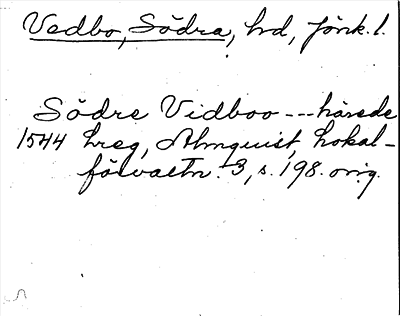 Vedbo, Södra, hd, Jönk. l.
Södre Vidboo --- härede
1544 hreg, Almquist, Lokal-
förvaltn. 3, s. 198. orig.